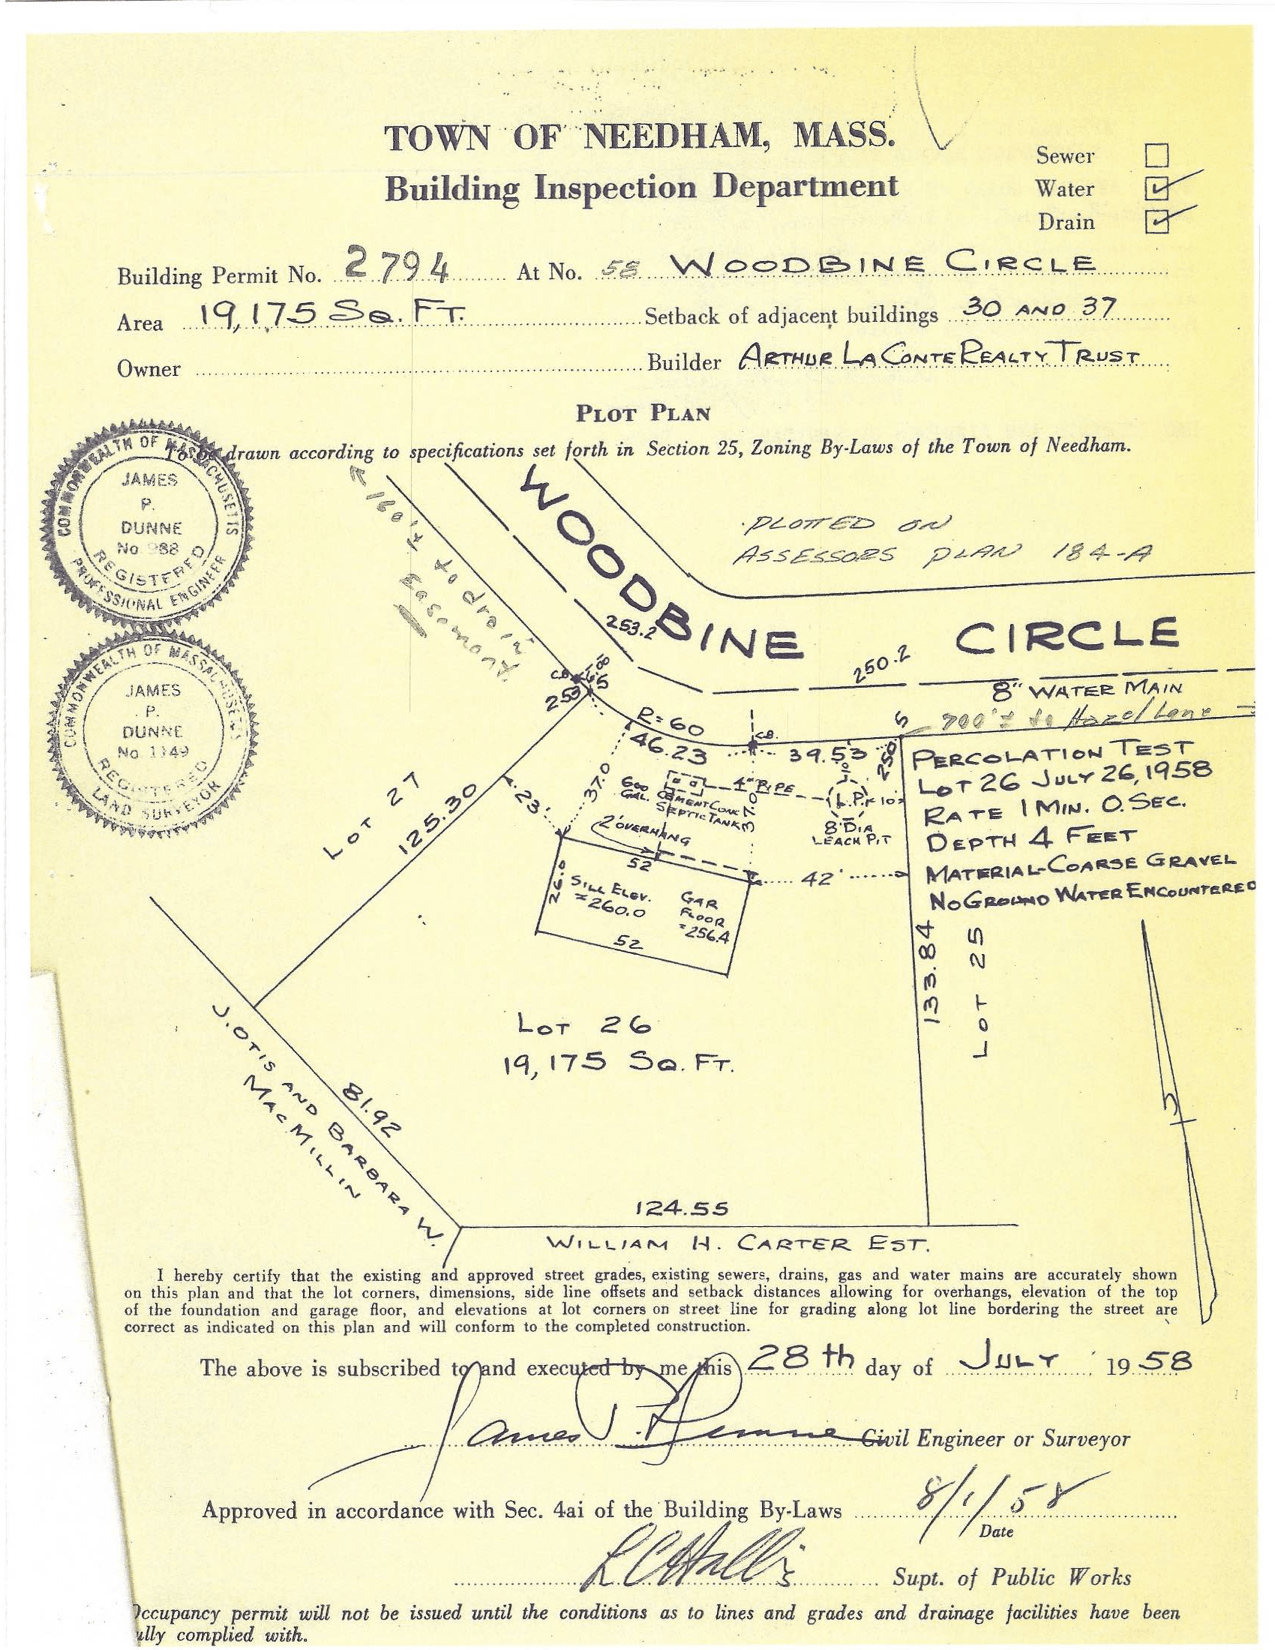 TOWN OF NEEDHAM, MASS.
Building Inspection Department
Sewer
Water
Drain
Building Permit No. 2794 At No. 58 WOODBINE CIRCLE
Area 19,175 SQ. FT. Setback of adjacent buildings 30 AND 37
Owner Builder ARTHUR LACONTE REALTY TRUST
PLOT PLAN
To be drawn according to specifications set forth in Section 25, Zoning By-Laws of the Town of Needham.
COMMONWEALTH OF MASSACHUSETTS
JAMES
P.
DUNNE
REGISTERED
PROFESSIONAL ENGINEER
COMMONWEALTH OF MASSACHUSETTS
JAMES
P.
DUNNE
No. 1149
REGISTERED
LAND SURVEYOR
160'± to drain
Easement.
PLOTTED ON
ASSESSORS PLAN 184-A
WOODBINE CIRCLE
253.2
250.2
8" WATER MAIN
700'± to Hazel Lane
C.B.
R=60
46.23
C.B.
39.53
PERCOLATION TEST
LOT 26 JULY 26, 1958
RATE 1 MIN. 0 SEC.
DEPTH 4 FEET
MATERIAL-COARSE GRAVEL
NO GROUND WATER ENCOUNTERED
LOT 27
125.30
23'
37.0
600 GAL.
CEMENT CONC.
SEPTIC TANK
4" PIPE
L.P.
10'
8' DIA
LEACH PIT
2' OVERHANG
52
42'
26.0
SILL ELEV.
=260.0
GAR
FLOOR
=256.4
52
133.84
LOT 25
LOT 26
19,175 SQ. FT.
J. OTIS AND BARBARA W.
MACMILLIN
81.92
124.55
WILLIAM H. CARTER EST.
I hereby certify that the existing and approved street grades, existing sewers, drains, gas and water mains are accurately shown
on this plan and that the lot corners, dimensions, side line offsets and setback distances allowing for overhangs, elevation of the top
of the foundation and garage floor, and elevations at lot corners on street line for grading along lot line bordering the street are
correct as indicated on this plan and will conform to the completed construction.
The above is subscribed to and executed by me this 28th day of JULY 1958
James P. Dunne Civil Engineer or Surveyor
Approved in accordance with Sec. 4ai of the Building By-Laws 8/1/58
Date
Supt. of Public Works
Occupancy permit will not be issued until the conditions as to lines and grades and drainage facilities have been
fully complied with.